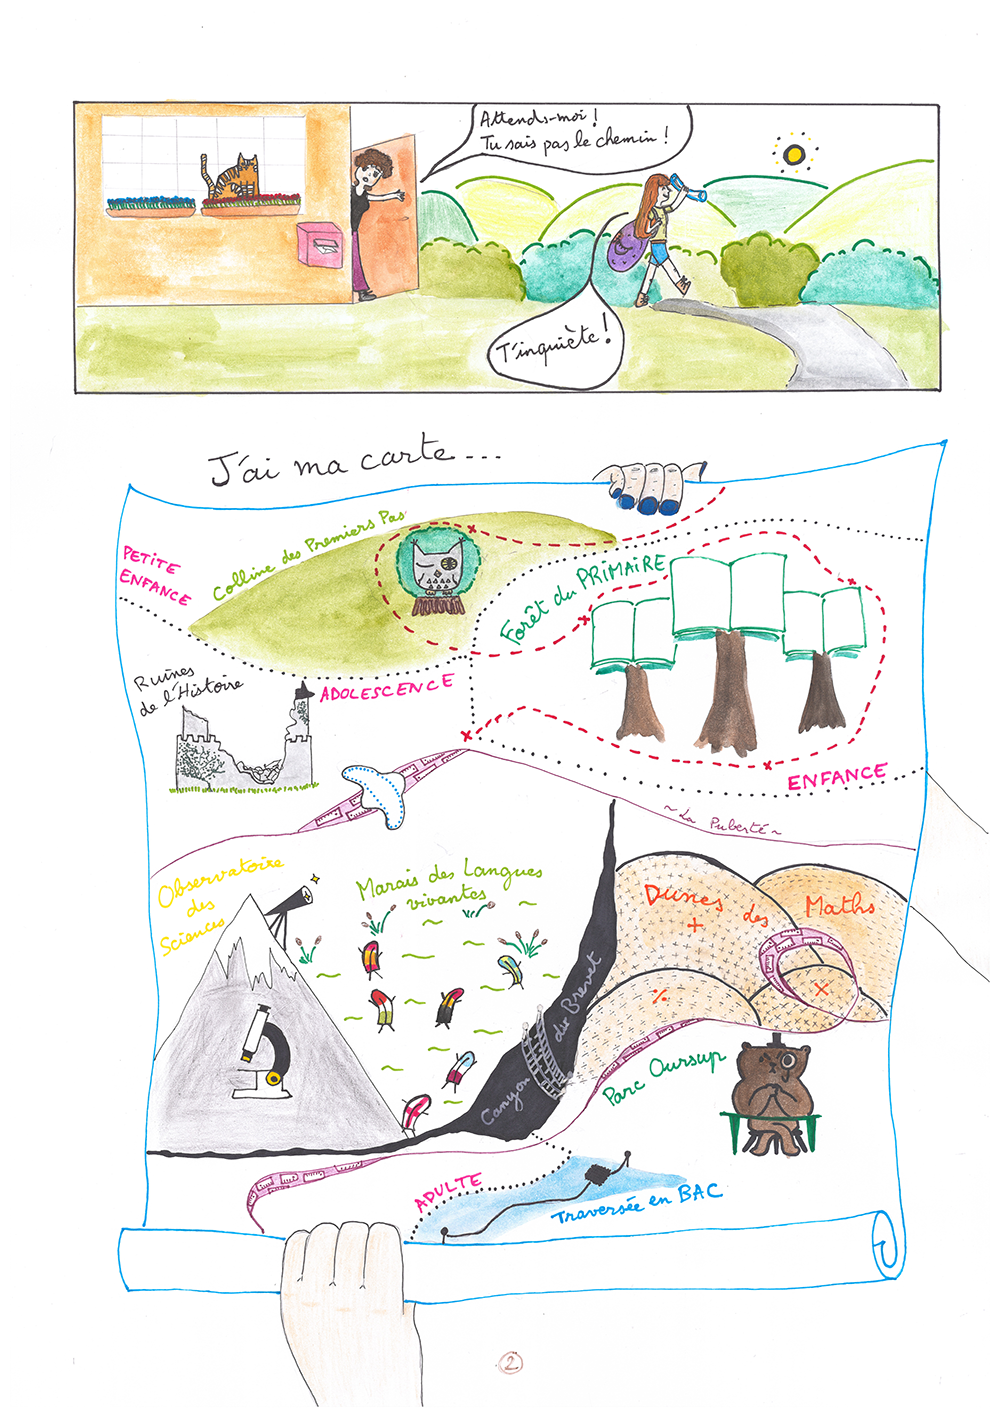 Attends-moi !
Tu sais pas le chemin !
T'inquiète !
J'ai ma carte...
Colline des Premiers Pas
PETITE
ENFANCE
Forêt du PRIMAIRE
Ruines
de l'Histoire
ADOLESCENCE
ENFANCE
~La Puberté~
Observatoire
des
Sciences
Marais des Langues
vivantes
Dunes des Maths
+
%
x
Canyon du Brevet
Parc Oursup
ADULTE
Traversée en BAC
2